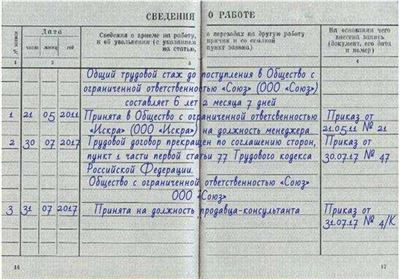 СВЕДЕНИЯ О РАБОТЕ
№ записи
Дата
число месяц год
Сведения о приеме на работу, о переводах на другую работу
и об увольнении (с указанием причин и со ссылкой
на статью, пункт закона)
На основании чего
внесена запись
(документ, его дата
и номер)
1 2 3 4
Общий трудовой стаж до поступления в Общество с
ограниченной ответственностью «Союз» (ООО «Союз»)
составляет 6 лет 2 месяца 7 дней
1 21 05 2011 Принята в Общество с ограниченной ответсвенностью Приказ от
«Искра» (ООО «Искра») на должность менеджера 21.05.11 № 21
2 30 07 2017 Трудовой договор прекращен по соглашению сторон, Приказ от
пункт 1 части первой статьи 77 Трудового кодекса 30.07.17 № 47
Российской Федерации.
Общество с ограниченной ответственностью «Союз»
ООО «Союз»
3 31 07 2017 Принята на должность продавца-консультанта Приказ от
31.07.17 № 4/К
16 17